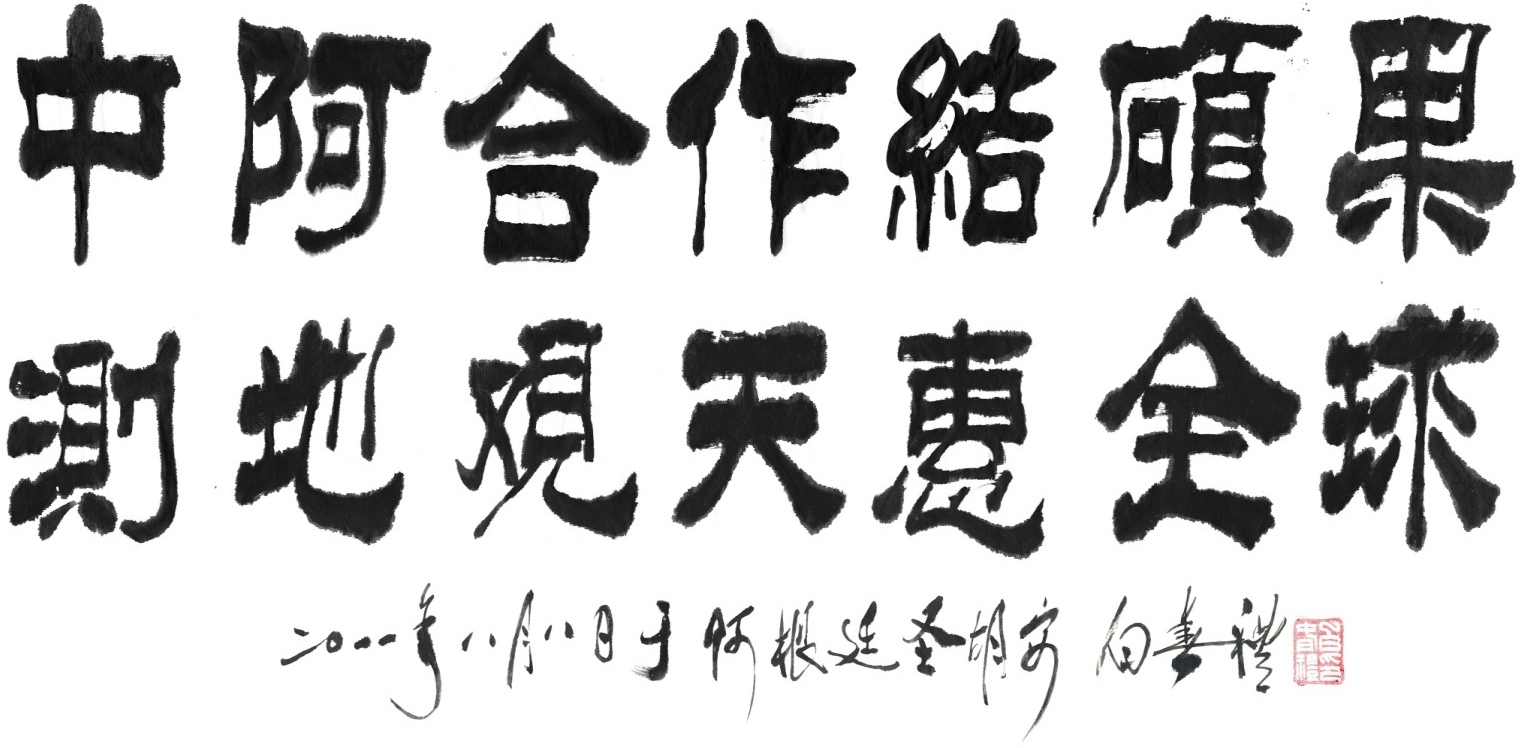 中阿合作結碩果
測地观天惠全球
二〇一一年八月八日于阿根廷圣胡安 白春禮